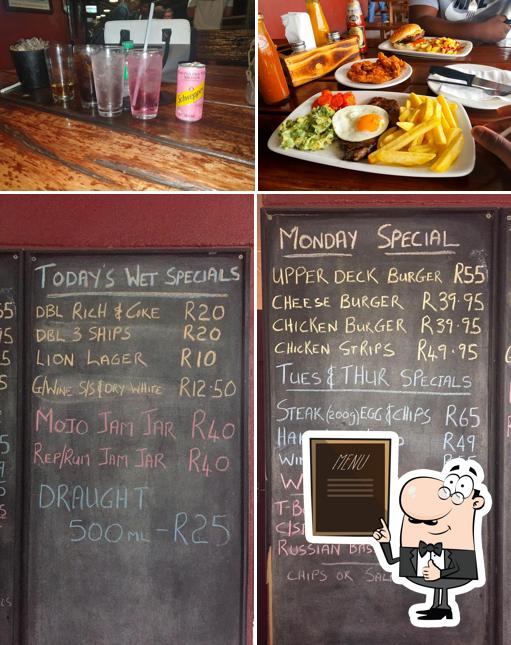 Schweppes
TODAY'S WET SPECIALS
DBL RICH & COKE R20
DBL 3 SHIPS R20
LION LAGER R10
G/WINE S/S & DRY WHITE R12.50
MOJO JAM JAR R40
REP/RUM JAM JAR R40
DRAUGHT
500ML - R25
MONDAY SPECIAL
UPPER DECK BURGER R55
CHEESE BURGER R39.95
CHICKEN BURGER R39.95
CHICKEN STRIPS R49.95
TUES & THUR SPECIALS
STEAK (200g) EGG & CHIPS R65
R49
MENU
RUSSIAN
CHIPS OR